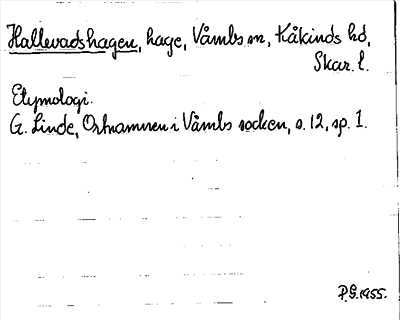 Hallevadshagen, hage, Våmbs sn, Kåkinds hd,
Skar. l.
Etymologi.
G. Linde, Ortnamnen i Våmbs socken, s. 12, sp. 1.
P.G. 1955.